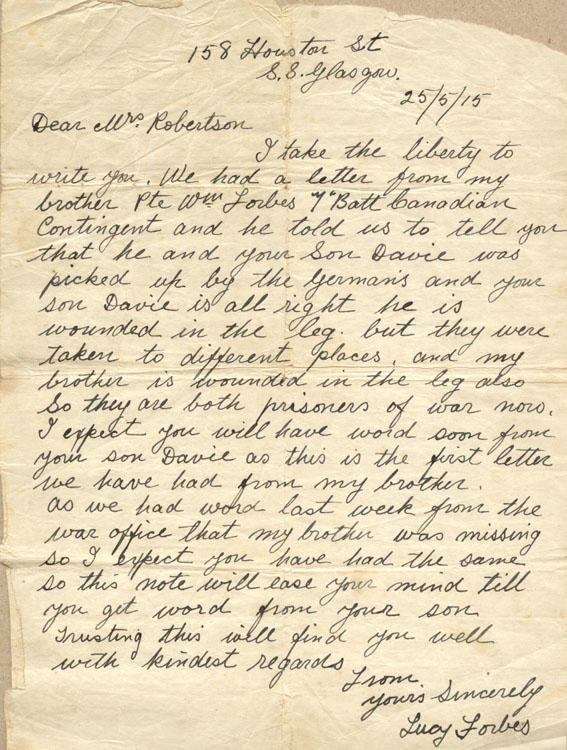 158 Houston St
S.S. Glasgow.
25/5/15
Dear Mrs. Robertson
I take the liberty to
write you. We had a letter from my
brother Pte Wm Forbes 7th Batt Canadian
Contingent and he told us to tell you
that he and your Son Davie was
picked up by the Germans and your
son Davie is all right he is
wounded in the leg. but they were
taken to different places. and my
brother is wounded in the leg also
So they are both prisoners of war now.
I expect you will have word soon from
your son Davie as this is the first letter
we have had from my brother.
as we had word last week from the
war office that my brother was missing
so I expect you have had the same
so this note will ease your mind till
you get word from your son
Trusting this will find you well
with kindest regards
From
yours Sincerely
Lucy Forbes